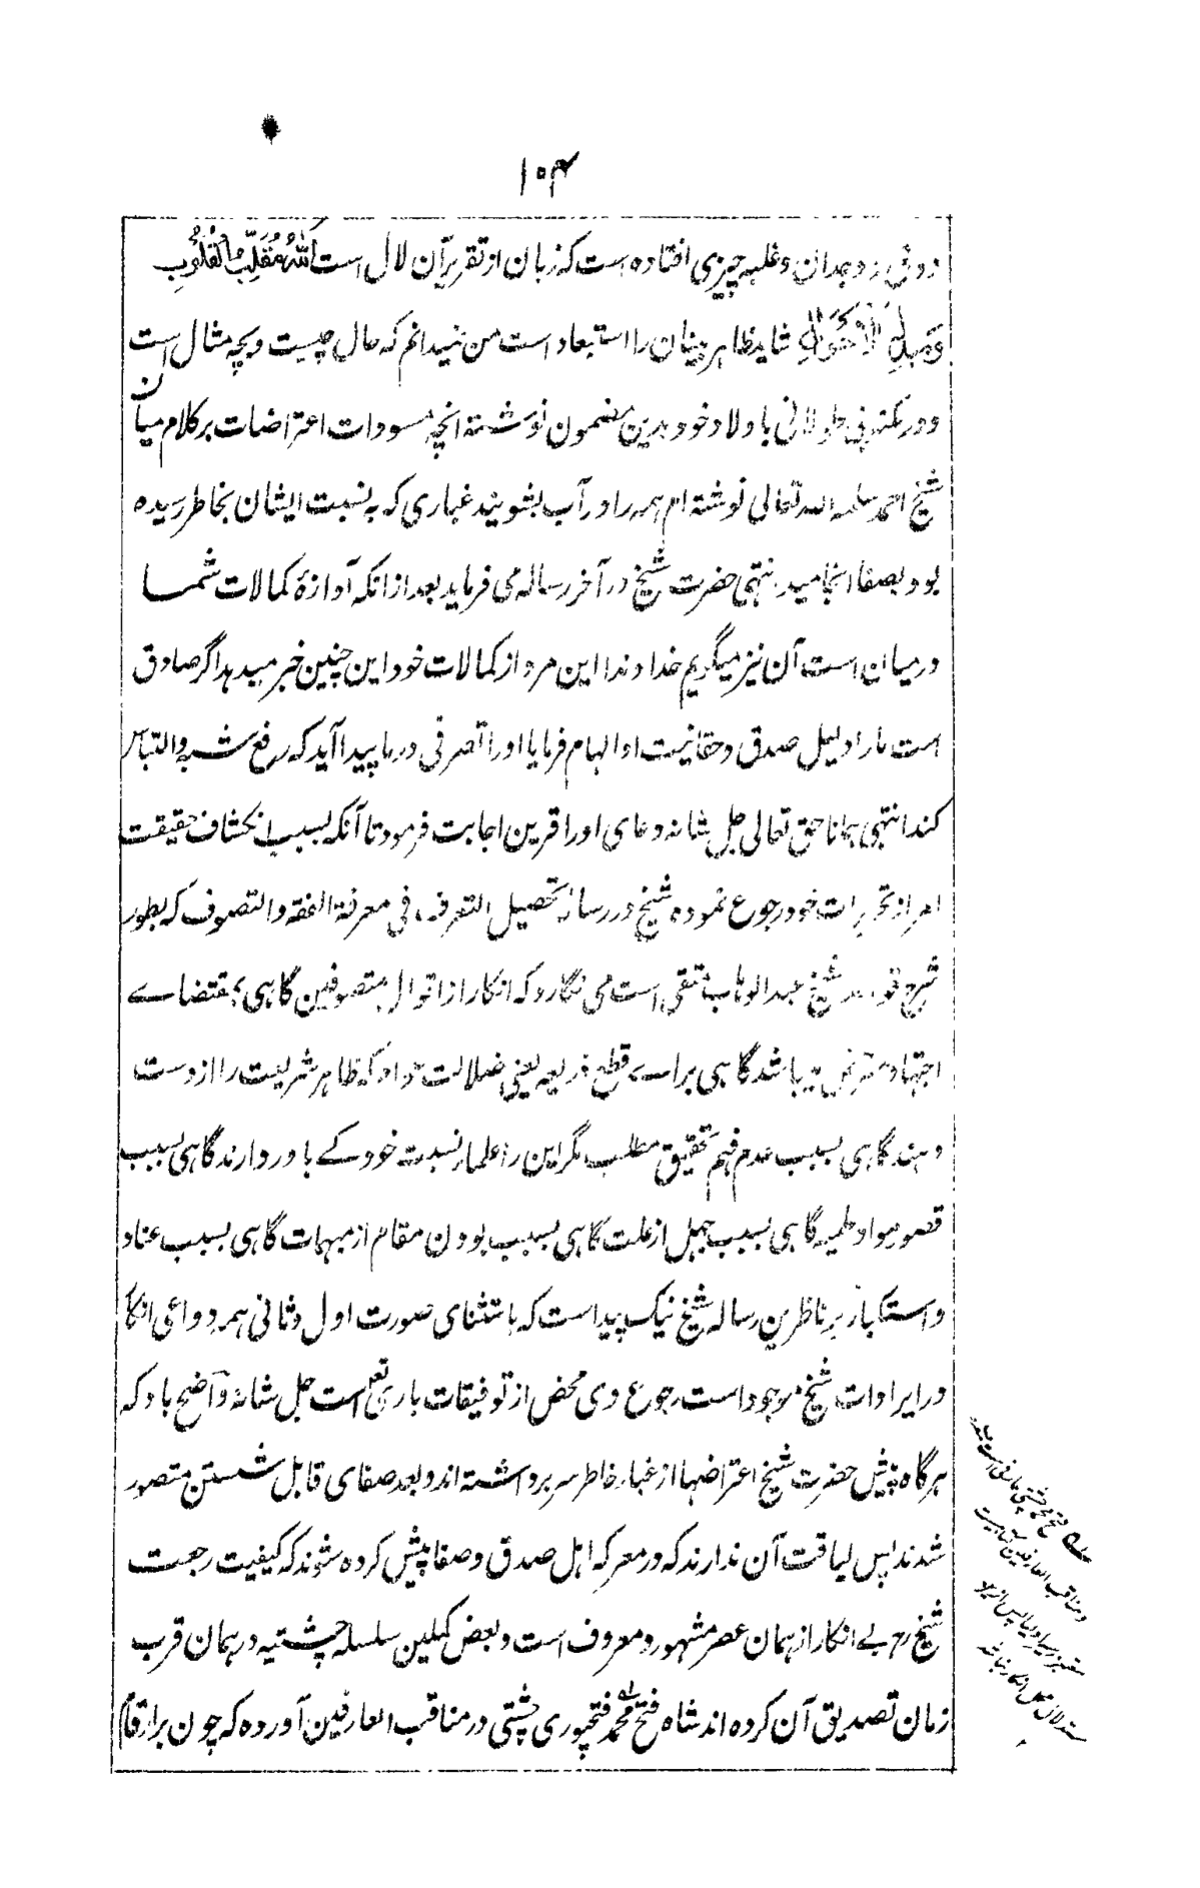 ۱۵۴
ذوقی و وجدان و غلبه چیزی افتاده است که زبان از تقریر آن لال است اللّٰهُ مُقَلِّبُ الْقُلُوْبِ
وَمُبَدِّلُ الْاَحْوَالِ شاید ظاهر بینان را استبعاد است من نمیدانم که حال چیست و بچه مثال است
و در مکتوبی طولانی با ولاد خود بدین مضمون نوشته انچه مسودات اعتراضات بر کلام میان
شیخ احمد سلمه الله تعالی نوشته ام همه را در آب بشویند غباری که به نسبت ایشان بخاطر رسیده
بود بصفا انجامید انتهی حضرت شیخ در آخر رساله می فرماید بعد از انکه آوازۀ کمالات شما
درمیان است آن نیز میگریم خداوندا این مرد از کمالات خود این چنین خبر میدهد اگر صادق
است ما را دلیل صدق و حقانیت او الهام فرما یا او را تصرفی در ما پیدا آید که رفع شبه و التباس
کند انتهی همانا حق تعالی جل شانه دعای او را قرین اجابت فرمود تا آنکه بسبب انکشاف حقیقت
امر از تحریرات خود رجوع نموده شیخ در رساله تحصیل التعرف فی معرفة الفقه والتصوف که بطور
شرح شیخ عبدالوهاب متقی است می نگارد که انکار از اقوال متصوفین گاهی بمقتضاے
اجتهاد باشد گاهی براے قطع ذریعه یعنی ضلالت عوام که ظاهر شریعت را از دست
دهند گاهی بسبب عدم فهم تحقیق مطلب مگر این را علما نسبت خود کے باور دارند گاهی بسبب
قصور مواد علمیه گاهی بسبب جهل از علت گاهی بسبب بودن مقام از مبهمات گاهی بسبب عناد
و استکبار بر ناظرین رساله شیخ نیک پیداست که باستثنای صورت اول و ثانی همه دواعی انکا
در ایرادات شیخ موجود است رجوع وی محض از توفیقات باری تعالی است جل شانه واضح باد که
هرگاه پیش حضرت شیخ اعتراضها از غبار خاطر سر برداشته اند و بعد صفای قابل شستن متصور
شدند پس لیاقت آن ندارند که در معرکه اهل صدق و صفا پیش کرده شوند که کیفیت رجعت
شیخ رح بے انکار از همان عصر مشهور و معروف است و بعض کملین سلسله چشتیه در همان قرب
زمان تصدیق آن کرده اند شاه فتح محمد فتحپوری چشتی در مناقب العارفین آورده که چون برارقام